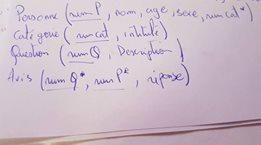 Personne (numP, nom, age, sexe, numcat*)
Catégorie (numcat, intitulé)
Question (numQ, Description)
Avis (numQ*, numP*, réponse)